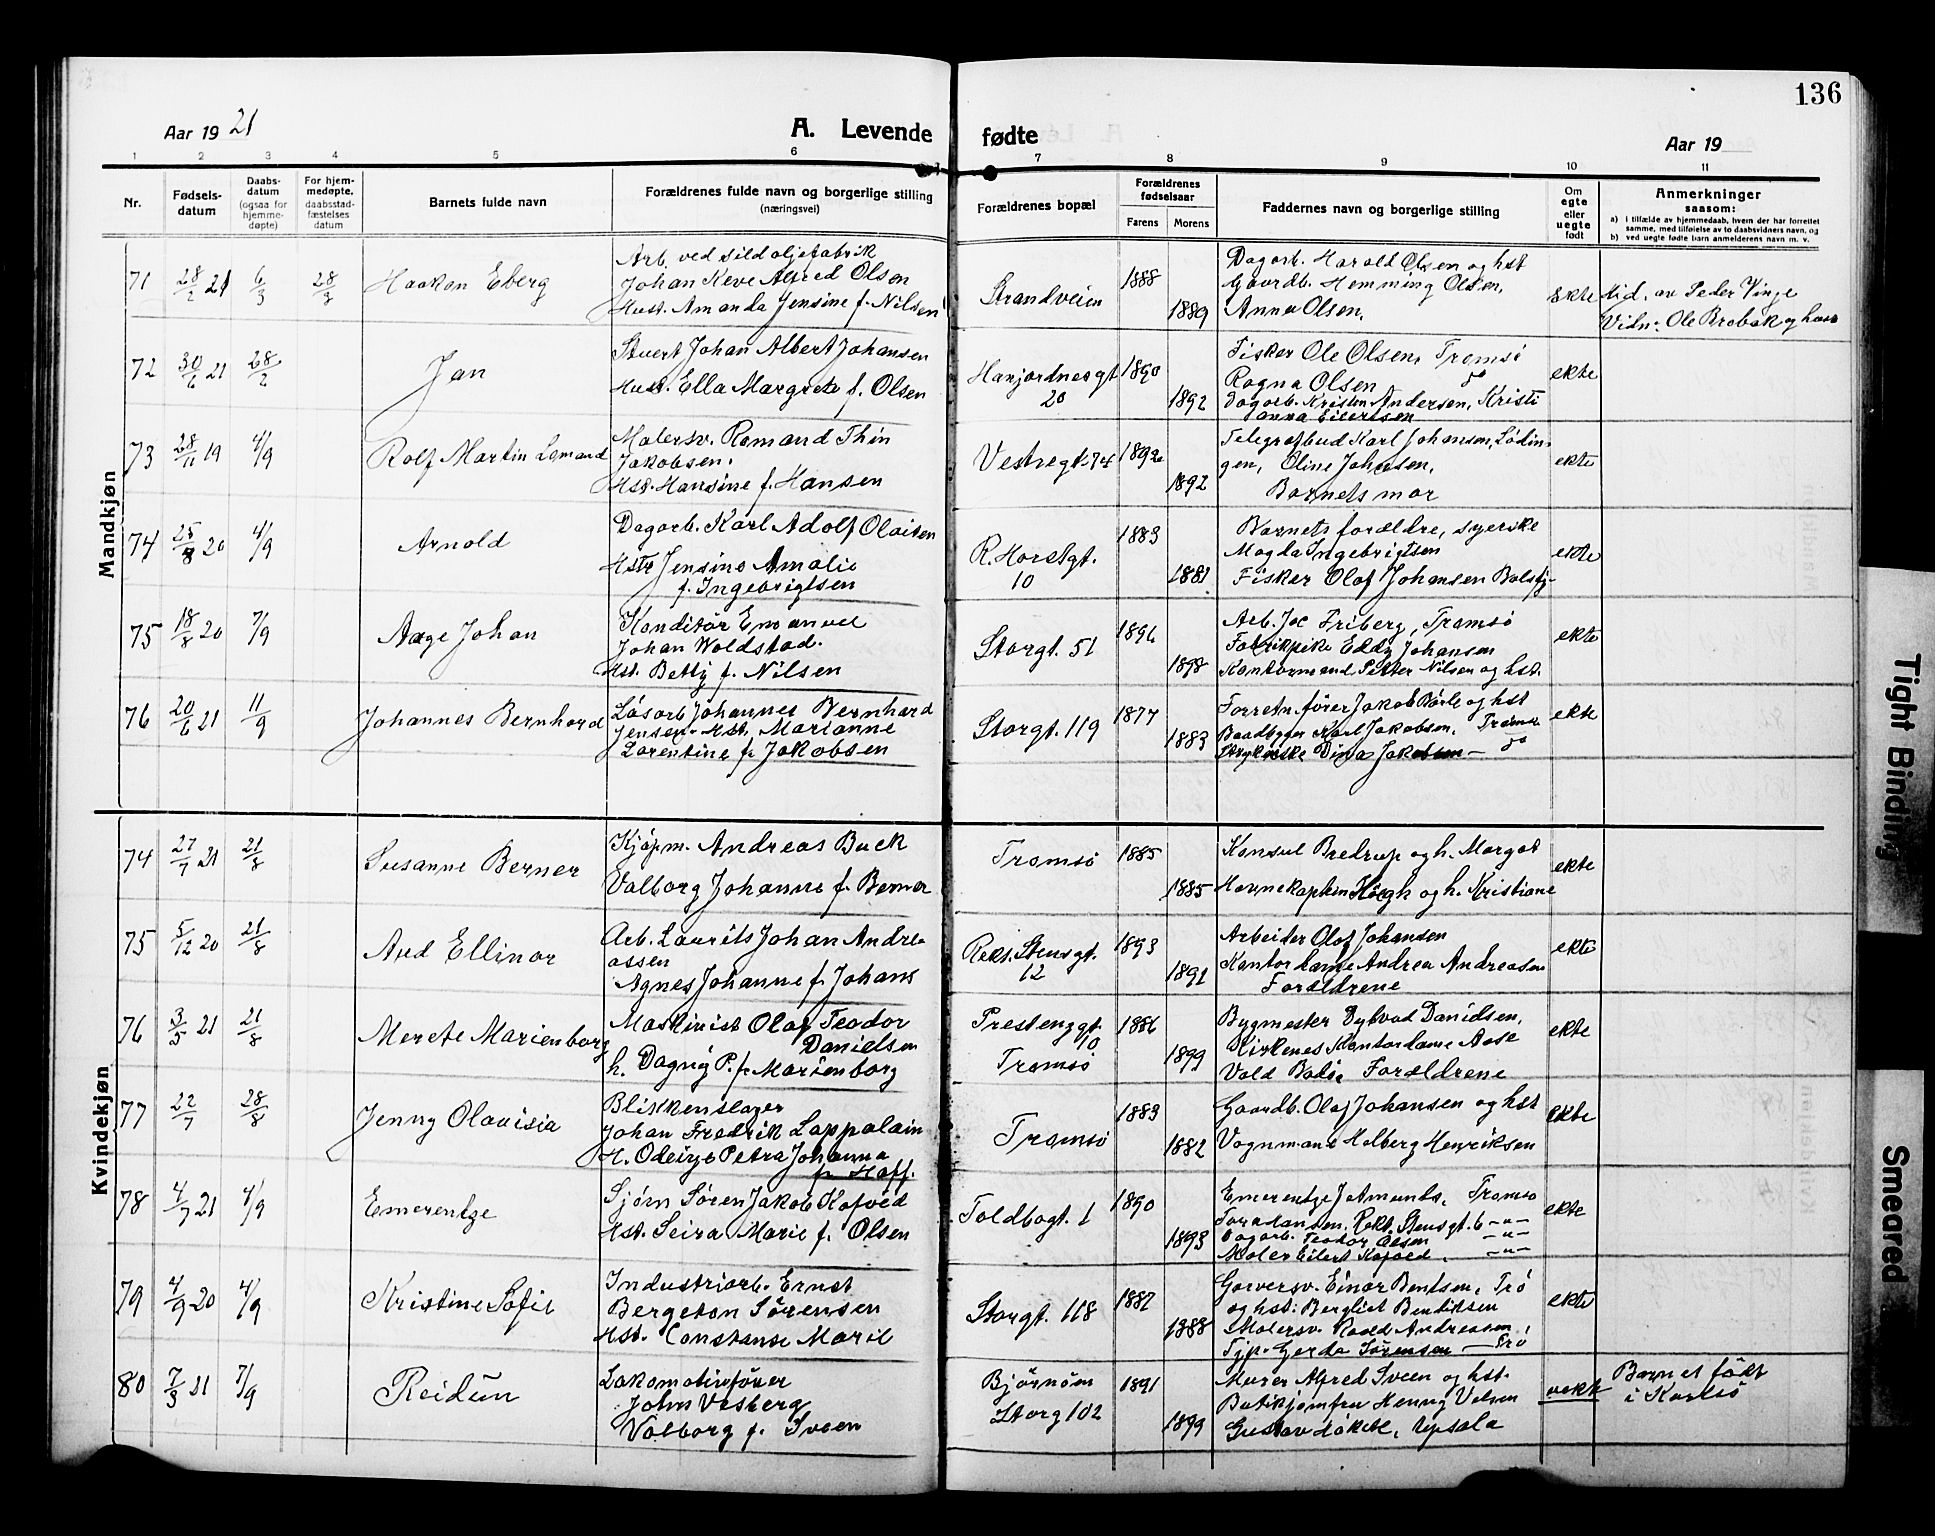 136
Aar 19 21
A. Levende fødte
Aar 19
1 2 3 4 5 6 7 8 9 10 11
Nr.
Fødsels-
datum
Daabs-
datum
(ogsaa for
hjemme-
døpte)
For hjem-
medøpte,
daabsstad-
fæstelses
datum
Barnets fulde navn
Forældrenes fulde navn og borgerlige stilling
(næringsvei)
Forældrenes bopæl
Forældrenes
fødselsaar
Farens Morens
Faddernes navn og borgerlige stilling
Om
egte
eller
uegte
født
Anmerkninger
saasom:
a) i tilfælde av hjemmedaab, hvem der har forrettet
samme, med tilføielse av to daabsvidners navn, og
b) ved uegte fødte barn anmelderens navn m. v.
Mandkjøn
71 28/2 21 6/3 Haakon Eberg
Arb. ved sildoljefabrik
Johan Keve Alfred Olsen
Hust. Amanda Jensine f. Nilsen
Strandveien 1888 1889
Dagarb. Harald Olsen og hst
Gaardb. Hemming Olsen,
Anna Olsen.
ekte
av Peder Vinje
Vidn: Ole Brobak og
72 30/6 21 28/2 Jan
Stuert Johan Albert Johansen
Hust. Ella Margrete f. Olsen
20 1890 1892
Fisker Ole Olsen, Tromsø
Ragna Olsen do
Dagarb. Kristen Andersen, Kristi
anna Eilertsen
ekte
73 28/11 19 4/9 Rolf Martin
Malersv. Romand Thin
Jakobsen.
Hst. Hansine f. Hansen
Vestregt. 74 1892 1892
Telegrafbud Karl Johansen, Lødin-
gen, Oline Johnsen,
Barnets mor
ekte
74 25/8 20 4/9 Arnold
Dagarb. Karl Adolf Olaisen
Hstr Jensine Amalie
f. Ingebrigtsen
10 1883 1881
Barnets forældre, syerske
Magda Ingebrigtsen
Fisker Olaf Johansen Balsfj.
ekte
75 18/8 20 7/9 Aage Johan
Konditor Emanuel
Johan Woldstad.
Hst. Betty f. Nilsen
Storgt. 51 1896 1898
Arb. Joc Friberg, Tromsø
Fabrikpike Eddy Johansen
Kontormand Petter Nilsen og hst.
ekte
76 20/6 21 11/9 Johannes Bernhard
Løsarb Johannes Bernhard
Jensen. Hst. Marianne
Lorentine f. Jakobsen
Storgt. 119 1877 1883
Forretn.fører Jakob og hst
Karl Jakobsen. Tromsø
Dina Jakobsen — do
ekte
Kvindekjøn
74 27/7 21 21/8 Susanne Berner
Kjøpm. Andreas Buck
Valborg Johanne f. Berner
Tromsø 1885 1885
Konsul Bredrup og h. Margot
Havnekaptein Høegh og h. Kristiane
ekte
75 5/12 20 21/8 Aud Ellinor
Arb. Laurits Johan Andre-
assen
Agnes Johanne f. Johans
Reks. Stensgt.
12 1893 1891
Arbeider Olaf Johansen
Kontordame Andrea Andreasen
Forældrene
ekte
76 3/5 21 21/8 Merete Marienborg
Maskinist Olaf Teodor
Danielsen
h. Dagny P. f. Marienborg
Prestenggt.
10
Tromsø 1886 1899
Bygmester Danielsen,
Kirkenes Kontordame Aase
Vold Bodø, Forældrene
ekte
77 22/7 28/8 Jenny Olavisia
Blikkenslager
Johan Fredrik Lappalain
H. Petra Johanna
f. Hoff.
Tromsø 1883 1882
Gaardb. Olaf Johansen og hst
Vognmand Halberg Henriksen
ekte
78 4/7 21 4/9 Emerentze
Sjøm Søren Jakob Kofoed
Hst. Seira Marie f. Olsen
Toldbogt. 1 1890 1893
Emerentze J. Amunds. Tromsø
Tora Hansen, Rekt. Stensgt. 6 —"—
Dagarb. Teodor Olsen —"—
Maler Eilert Kofoed. —"—
ekte
79 4/9 20 4/9 Kristine Sofie
Industriarb. Ernst
Bergeton Sørensen
Hst. Constanse Marie
Storgt. 118 1887 1888
Garversv. Einar Bentsen, Trø
og hst: Bergliot Bendiksen
Malersv. Andreasen,
Tjp. Gerda Sørensen — Trø
ekte
80 7/3 21 7/9 Reidun
Lokomotivfører
John Vesberg
Valborg f. Sveen
Storg 102 1891 1899
Murer Alfred Sveen og hst.
Butikjomfru Henny Nilsen
Gustav, Upsala
uekte
Barnet født
i Karlsø
Tight Binding
Smeared